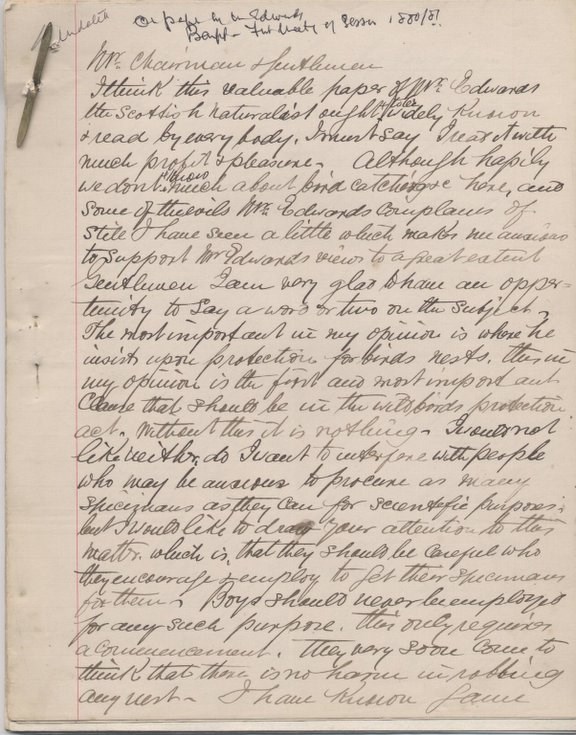 On paper by Mr Edwards
Banff - First Meety of Session 1880/81
Mr. Chairman & Gentlemen
I think this valuable paper of Mr. Edwards
the Scottish Naturalist ought to be widely Known
& read by every body. I must say I read it with
much profit & pleasure - Although happily
we dont Know much about bird catching here, and
Some of the evils Mr. Edwards complains of
Still I have seen a little which makes me anxious
to Support Mr Edwards views to a great extent
Gentlemen I am very glad to have an oppor-
tunity to Say a word or two on the Subject -
The most important in my opinion is where he
insists upon protection for birds nests. this in
my opinion is the first and most important
Clause that should be in the wild birds protection
act. Without this it is nothing - I would not
like neither do I want to interfere with people
who may be anxious to procure as many
specimans as they can for scientific purposes,
but I would like to draw your attention to this
matter. which is, that they should be careful who
they encourage & employ to get their specimans
for them - Boys should never be employed
for any such purpose. this only requires
a Commencement. they very soon come to
think that there is no harm in robbing
any nest - I have Known Game